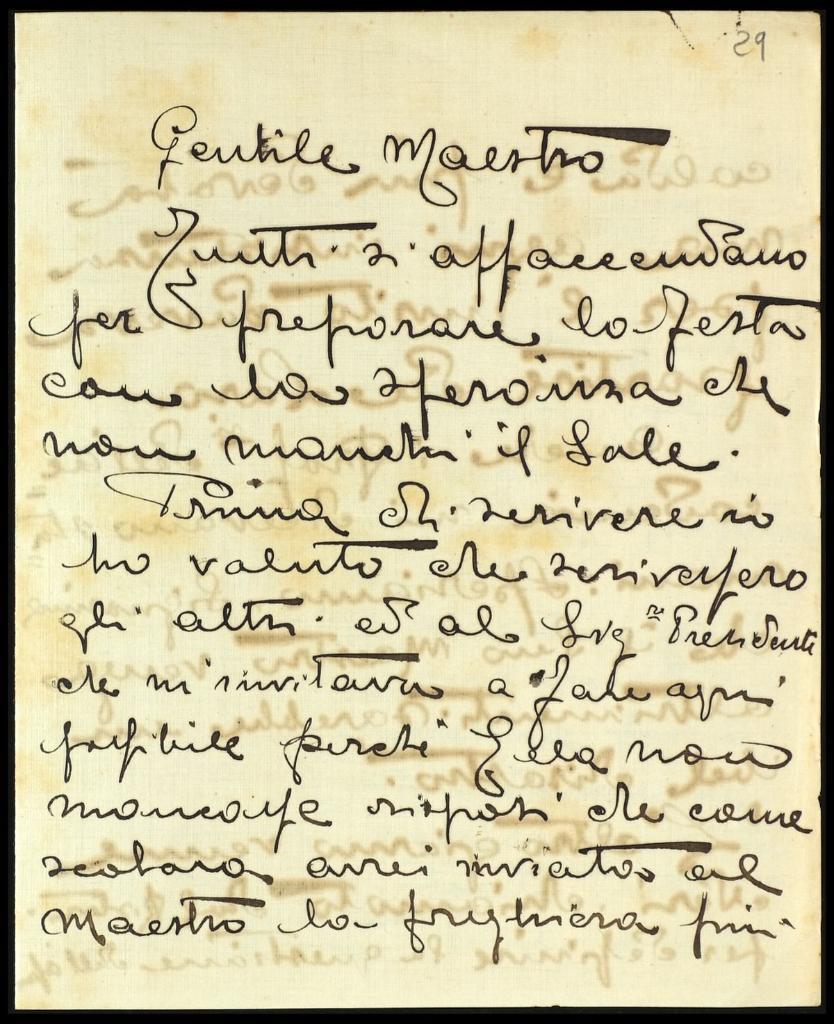 29
Gentile Maestro
Tutti si affaccendano
per preparare la festa
con la speranza che
non manchi il Sole.
Prima di scrivere io
ho voluto che scrivessero
gli altri ed al Sig.re Presidente
che m'invitava a fare ogni
possibile perché Ella non
mancasse risposi che come
scolara avrei inviato al
Maestro la preghiera più